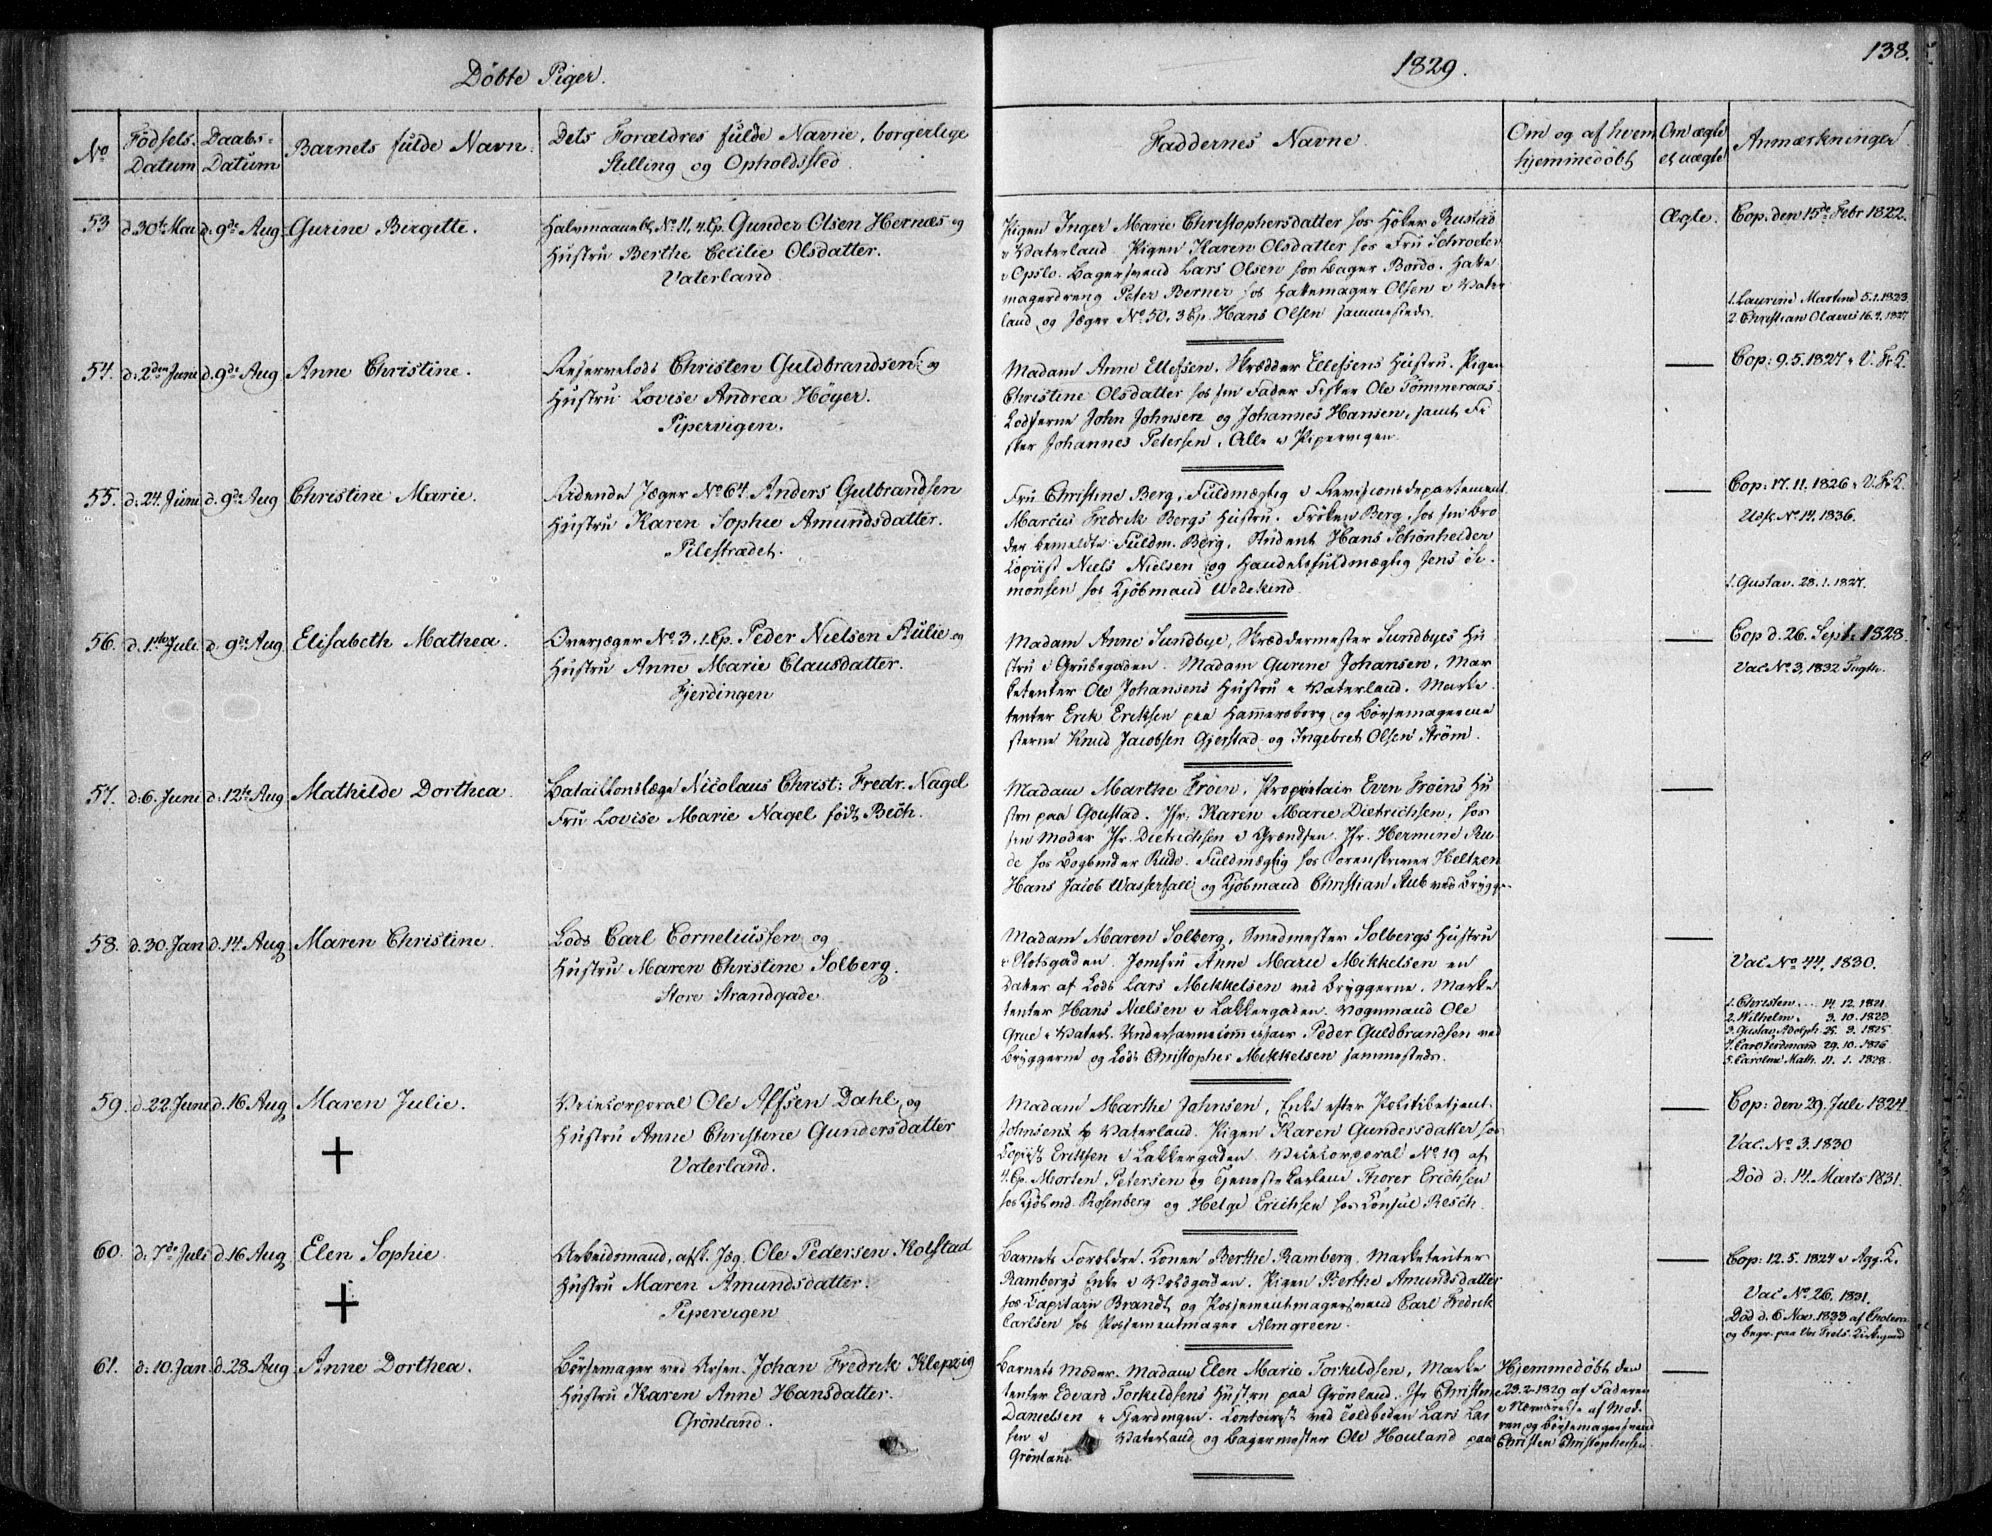 Døbte Piger.
1829.
138.
No
Fødsels-
Datum
Daabs-
Datum
Barnets fulde Navn.
Dets Forældres fulde Navne, borgerlige
Stilling og Opholdsted.
Faddernes Navne
Om og af hvem
hjemmedøbt
Om ægte
el. uægte
Anmærkninger
53 d. 30te Mai d. 9de Aug. Gurine Birgitte.
Halvmaanebl. No. 11, 4. Cp. Gunder Olsen Hernæs og
Hustru Berthe Cecilie Olsdatter.
Vaterland.
Pigen Inger Marie Christophersdatter hos Høker Bustad
i Vaterland. Pigen Karen Olsdatter hos Fru Schroeter
i Opslo. Bagersvend Lars Olsen hos Bager Bordo. Hatte
magerdreng Peter Berner hos Hattemager Olsen i Vater
land og Jæger No. 50. 3 Cp. Hans Olsen sammesteds.
Ægte.
Cop. den 15de Febr 1822.
1. Laurine Martine 5.1.1823.
2 Christian Olavus 16.9.1827
54. d. 2den Juni d. 9de Aug Anne Christine.
Reservelods Christen Guldbrandsen og
Hustru Lovise Andrea Høyer.
Pipervigen.
Madam Anne Ellefsen, Skrædder Ellefsens Hustru. Pigen
Christine Olsdatter hos sin Fader Fisker Ole Tømmeraas.
Lodserne John Johnsen og Johannes Hansen, samt Fi
sker Johannes Petersen, Alle i Pipervigen.
Cop: 9.5.1827 i V. Fr. K.
55. d. 24. Juni d. 9de Aug Christine Marie.
Ridende Jæger No 64. Anders Gulbrandsen
Hustru Karen Sophie Amundsdatter.
Pilestrædet.
Fru Christine Berg, Fuldmægtig i Revisionsdepartement
Marcus Fredrik Bergs Hustru. Frøken Berg, hos sin Bro
der bemeldte Fuldm. Berg, Student Hans Schönheider
Copiist Niels Nielsen og Handelsfuldmægtig Jens Si-
monsen hos Kjøbmand Wedekind.
Cop: 17.11.1826 i V. Fr. K.
Udsk. No. 14. 1836.
1. Gustav. 28.1.1827.
56. d. 1ste Juli. d. 9de Aug Elisabeth Mathea.
Overjæger No. 3. 1. Cp. Peder Nielsen Aulie og
Hustru Anne Marie Clausdatter.
Fjerdingen
Madam Anne Sundbye, Skræddermester Sundbyes Hu
stru i Grubegaden. Madam Gurine Johansen, Mar
ketenter Ole Johansens Hustru i Vaterland. Marke
tenter Erik Eriksen paa Hammersborg og Børsemagerne
sterne Knud Jacobsen Gjerstad og Ingebret Olsen Strøm.
Cop d. 26. Sept. 1828.
Vac No. 3, 1832
57. d. 6. Juni d. 12te Aug Mathilde Dorthea.
Bataillonslæge Nicolaus Christ: Fredr. Nagel
Fru Lovise Marie Nagel født Bech.
Madam Marthe Frøen, Proprietair Even Frøens Hu
stru paa Goustad. Jfr. Karen Marie Dietrichsen, hos
sin Moder Jfr. Dietrichsen i Grændsen. Jfr. Hermine Ru
de hos Bogbinder Rude. Fuldmægtig hos Sorenskriver Heltzen
Hans Jacob Wasserfall og Kjøbmand Christian Aub ved Brygge.
58. d. 30. Jan d. 14. Aug Maren Christine.
Lods Carl Corneliussen og
Hustru Maren Christine Solberg.
Store Strandgade
Madam Maren Solberg, Smedmester Solbergs Hustru
i Slotsgaden. Jomfru Anne Marie Mikkelsen en
Datter af Lods Lars Mikkelsen ved Bryggerne. Marke
tenter Hans Nielsen i Lakkergaden. Vognmand Ole
Grue i Vaterl. Peder Guldbrandsen ved
Bryggerne og Lods Christopher Mikkelsen sammesteds.
Vac No. 44. 1830.
1. Christen. 14. 12. 1821.
2. Wilhelm. 3. 10. 1823
3. Gustav Adolph. 25. 9. 1825
4. Carl Ferdinand 29. 10. 1826
5. Caroline Math. 11. 1. 1828.
59. d. 22. Juni d. 16 Aug Maren Julie.
Vicecorporal Ole Alfsen Dahl og
Hustru Anne Christine Gundersdatter
Vaterland.
Madam Marthe Johnsen, Enke efter Politibetjent
Johnsens i Vaterland. Pigen Karen Gundersdatter hos
Copiist Eriksen i Lakkergaden. Vicecorporal No. 19 af
4. Cp. Morten Petersen og Tjenestekarlene Thorer Erichsen
hos Kjøbmd. Rosenberg og Helge Erichsen hos Consul Resch.
Cop: den 29. Juli 1824.
Vac. No. 3. 1830
Død d. 14. Marts 1831.
60. d. 7de Juli d. 16 Aug Elen Sophie.
Arbeidsmand, afsk. Jæg. Ole Pedersen Kolstad
Hustru Maren Amundsdatter.
Pipervigen
Barnets Forældre. Konen Berthe Ramberg, Marketenter
Rambergs Enke i Voldgaden. Pigen Berthe Amundsdatter
hos Capitain Brandt og Possementmagersvend Carl Fredrik
Carlsen hos Possementmager Almgreen.
Cop: 12.5. 1824 i Agg. K.
Vac No. 26. 1831.
Død d. 6 Nov. 1833 af Cholera
og begr. paa Vor Frels. Kirkegaard
61. d. 10. Jan. d. 23. Aug Anne Dorthea.
Børsemager ved Arsen. Johan Fredrik Klepzig
Hustru Karen Anne Hansdatter.
Grönland.
Barnets Moder. Madam Elen Marie Torkildsen, Marke
tenter Edvard Torkildsens Hustru paa Grønland. Jfr Christine
Danielsen i Fjerdingen. Contoirist ved Toldboden Lars Lar
sen i Vaterland og Bagermester Ole Houland paa
Grönland
Hjemmedøbt den
23.2.1829 af Faderen
i Nærværelse af Mod.
ren og Børsemagersvend
Christen Christophersen.